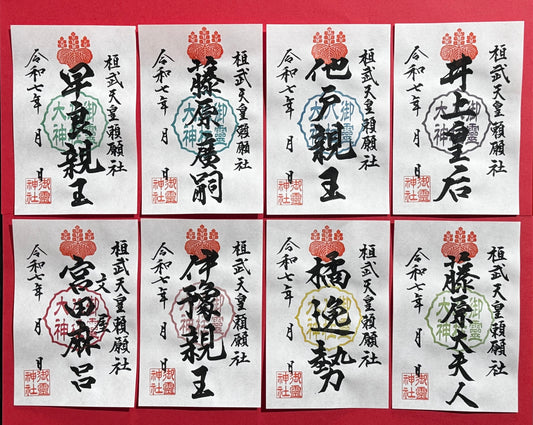 桓武天皇勅願社
井上皇后
御靈大神
令和七年 月 日
御靈神社
桓武天皇勅願社
他戸親王
御靈大神
令和七年 月 日
御靈神社
桓武天皇勅願社
藤原廣嗣
御靈大神
令和七年 月 日
御靈神社
桓武天皇勅願社
早良親王
御靈大神
令和七年 月 日
御靈神社
桓武天皇勅願社
藤原大夫人
御靈大神
令和七年 月 日
御靈神社
桓武天皇勅願社
橘逸勢
令和七年 月 日
御靈神社
桓武天皇勅願社
伊豫親王
令和七年 月 日
御靈神社
桓武天皇勅願社
文屋
宮田麻呂
御靈大神
令和七年 月 日
御靈神社